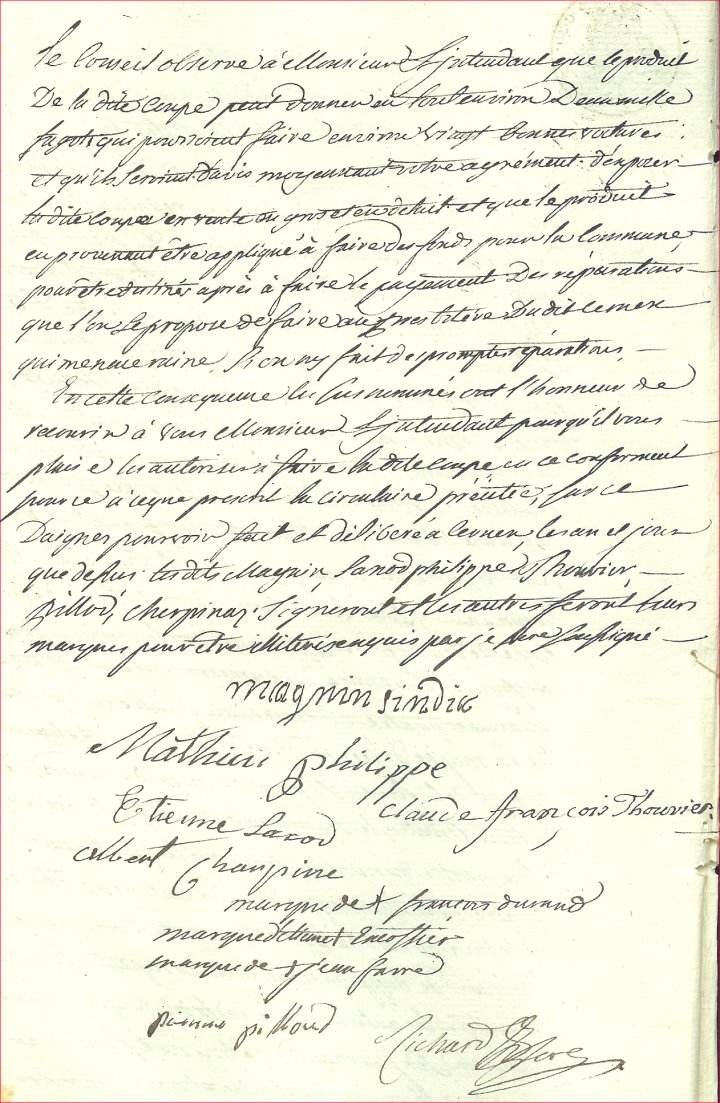 le Conseil observe à Monsieur L'jntendant que le produit
De la dite Coupe peut donner en tout environ Deux mille
fagots qui pourroient faire environ vingt bonnes voitures
et qu'ils seroient d'avis moyennant votre agrément d'exposer
la dite Coupe en vente en gros et en détail et que le produit
en provenant être appliqué à faire des fonds pour la Commune,
pour être destinés après à faire le payement Des réparations
que l'on se propose de faire au presbitère Du dit Cernex
qui menace ruine, si on n'y fait de promptes réparations,
En cette Consequence les susnommés ont l'honneur de
recourir à vous Monsieur L'jntendant pour qu'il vous
plaise les autoriser à faire la dite Coupe en ce conformant
pour ce à ce que prescrit la circulaire précitée, sur ce
Daignés pourvoir fait et délibéré à Cernex, les an et jour
que dessus lesdits Magnin, Lanod philippe, Thouvier,
pillod, Cherpinaz signeront et les autres feront leurs
marques pour être illiterés acquis par je soussigné
magnin sindic
Mathieu philippe
Claude françois Thouvier
Etienne Lanod
Albert Charpine
marque de + françois durand
marque d'
marque de + jean favre
pierre pilloud
Richard